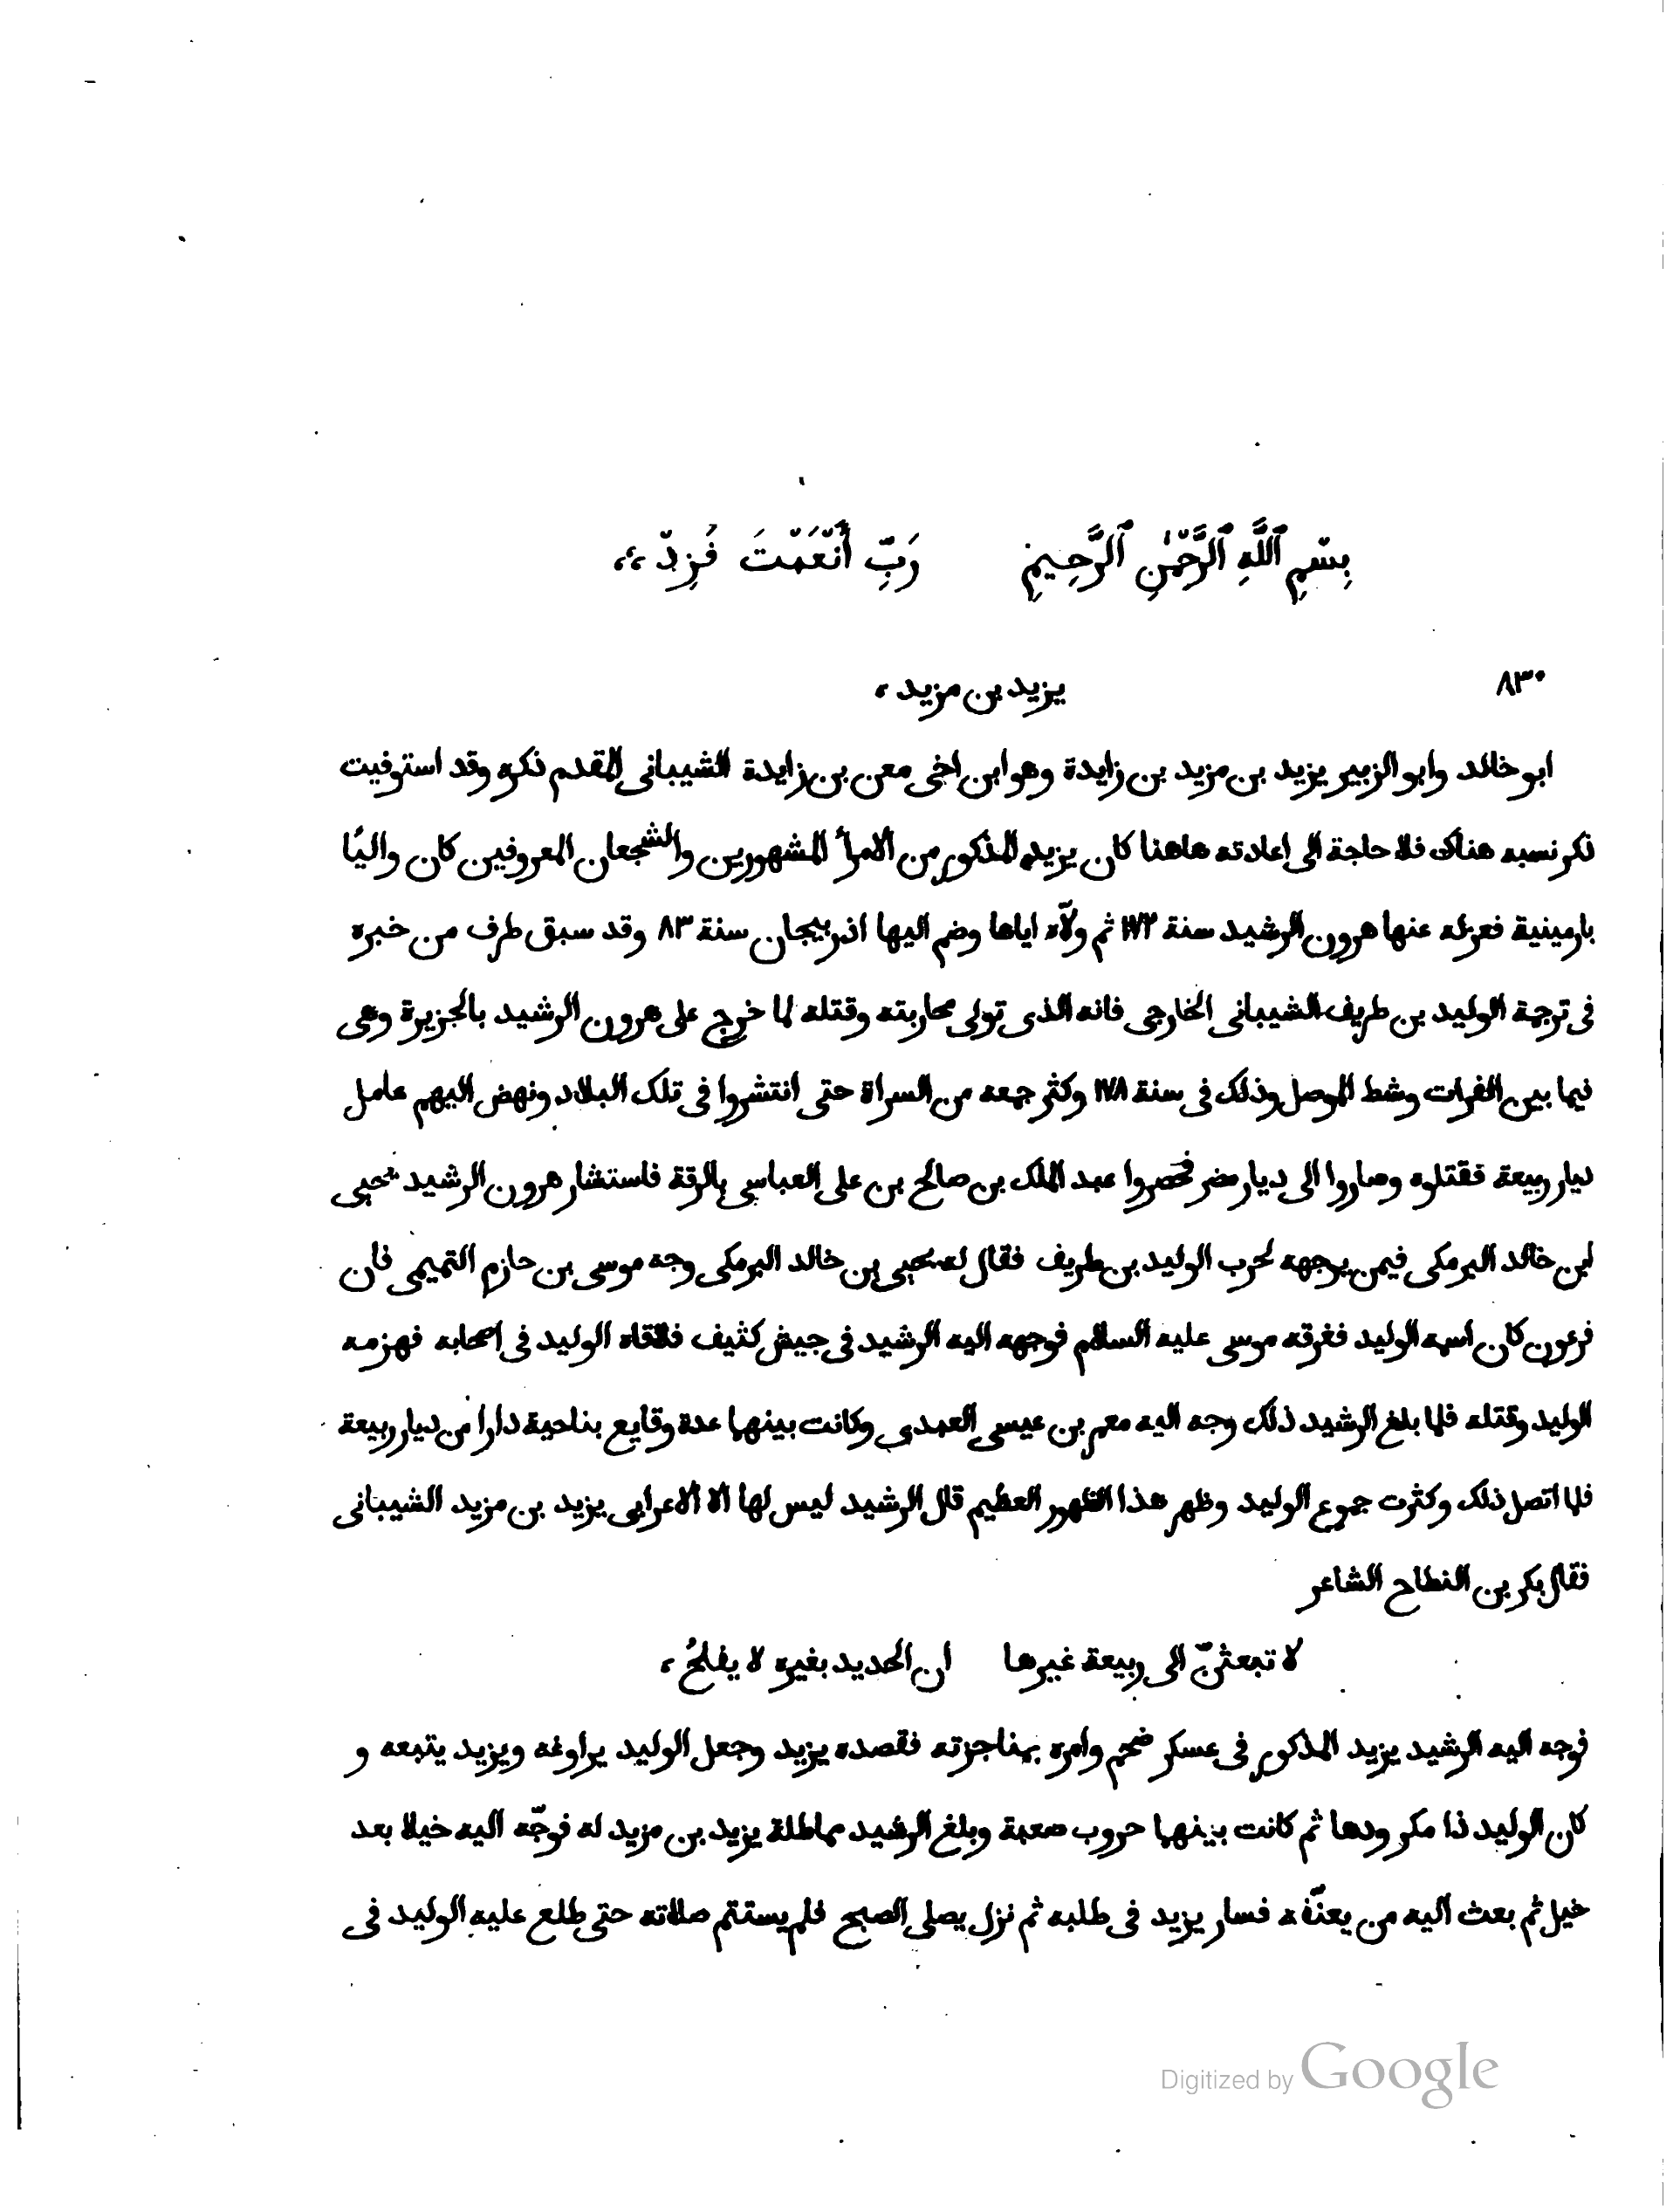 بِسْمِ ٱللَّهِ ٱلرَّحْمٰنِ ٱلرَّحِيمِ رَبِّ أَنْعَمْتَ فَزِدْ ،،
٨٣٠
يزيد بن مزيد ،
ابو خالد وابو الزبير يزيد بن مزيد بن زايدة وهو ابن اخى معن بن زايدة الشيبانى المقدم ذكره وقد استوفيت
ذكر نسبه هناك فلا حاجة الى إعادته هاهنا كان يزيد المذكور من الامرأ المشهورين والشجعان المعروفين كان واليًا
بارمينية فعزله عنها هرون الرشيد سنة ١٧٢ ثم ولّاه اياها وضم اليها اذربيجان سنة ٨٣ وقد سبق طرف من خبره
فى ترجمة الوليد بن طريف الشيبانى الخارجى فانه الذى تولى محاربته وقتله لما خرج على هرون الرشيد بالجزيرة وهى
فيما بين الفرات وشط الموصل وذلك فى سنة ١٧٨ وكثر جمعه من السراة حتى انتشروا فى تلك البلاد ونهض اليهم عامل
ديار ربيعة فقتلوه وصاروا الى ديار مضر فحصروا عبد الملك بن صالح بن على العباسى بالرقة فاستشار هرون الرشيد يحيى
ابن خالد البرمكى فيمن يوجهه لحرب الوليد بن طريف فقال له يحيى بن خالد البرمكى وجه موسى بن حازم التميمى فان
فرعون كان اسمه الوليد فغرقه موسى عليه السلام فوجهه اليه الرشيد فى جيش كثيف فلاقاه الوليد فى اصحابه فهزمه
الوليد وقتله فلما بلغ الرشيد ذلك وجه اليه معمر بن عيسى العبدى وكانت بينهما عدة وقايع بناحية دارا من ديار ربيعة
فلما اتصل ذلك وكثرت جموع الوليد وظهر هذا الظهور العظيم قال الرشيد ليس لها الا الاعرابى يزيد بن مزيد الشيبانى
فقال بكر بن النطاح الشاعر
لا تبعثنّ الى ربيعة غيرها ان الحديد بغيره لا يفلحُ ،
فوجه اليه الرشيد يزيد المذكور فى عسكر ضخم وامره بمناجزته فقصده يزيد وجعل الوليد يراوغه ويزيد يتبعه و
كان الوليد ذا مكر ودها ثم كانت بينهما حروب صعبة وبلغ الرشيد مماطلة يزيد بن مزيد له فوجّه اليه خيلا بعد
خيل ثم بعث اليه من يعنّفه فسار يزيد فى طلبه ثم نزل يصلى الصبح فلم يستتم صلاته حتى طلع عليه الوليد فى
Digitized by Google